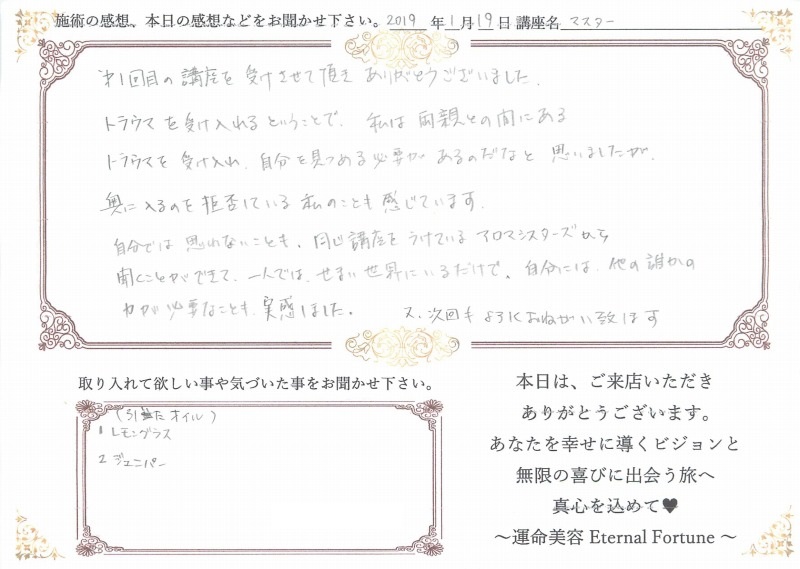 施術の感想、本日の感想などをお聞かせ下さい。2019年1月19日 講座名 マスター
第1回目の講座を受けさせて頂き ありがとうございました.
トラウマを受け入れるということで、私は両親との間にある
トラウマを受け入れ、自分を見つめる必要があるのだなと 思いましたが、
奥に入るのを拒否している私のことも感じています.
自分では思れないことも、同じ講座をうけているアロマシスターズから
聞くことができて、一人では、せまい世界にいるだけで、自分には、他の誰かの
力が必要なことも、実感しました。 又、次回もよろしくおねがい致します
取り入れて欲しい事や気づいた事をお聞かせ下さい。
(引いたオイル)
1 レモングラス
2 ジュニパー
本日は、ご来店いただき
ありがとうございます。
あなたを幸せに導くビジョンと
無限の喜びに出会う旅へ
真心を込めて♥
～運命美容 Eternal Fortune ～